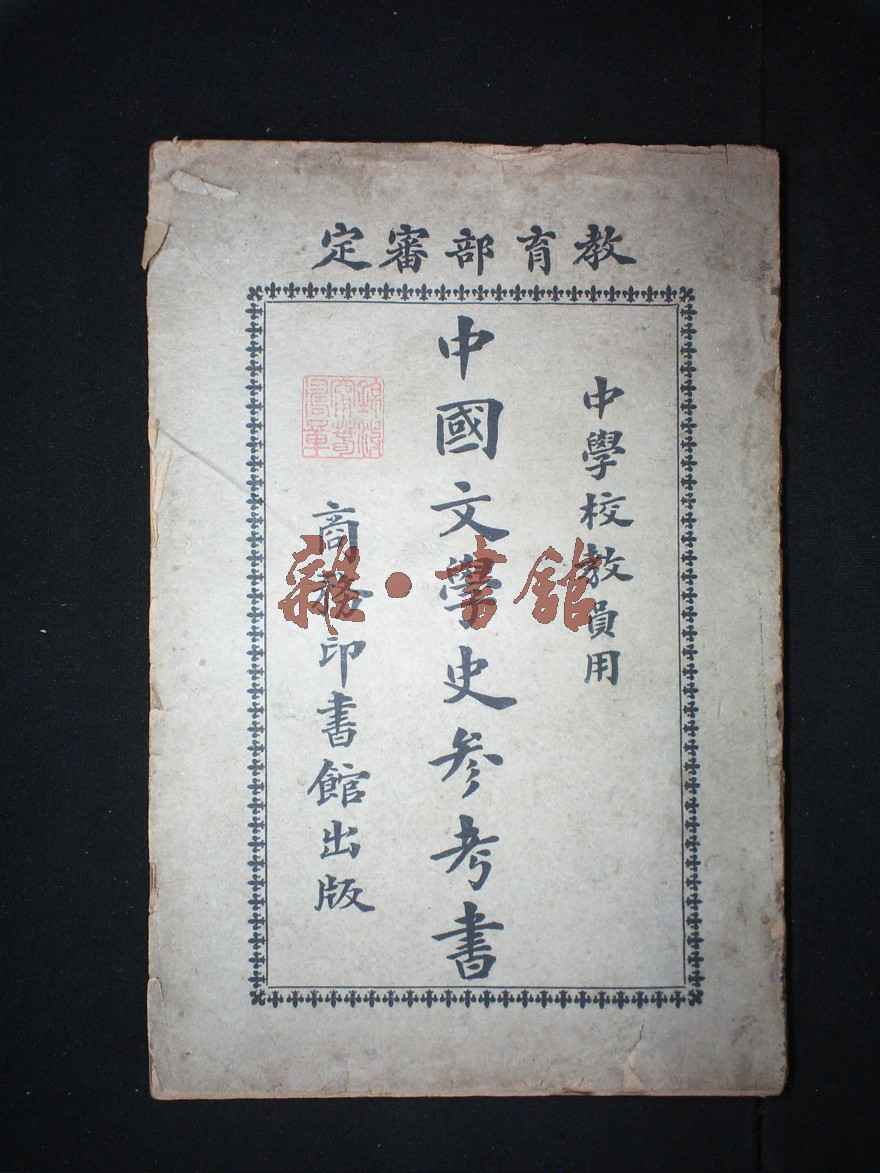 教育部審定
中學校教員用
中國文學史參考書
商務印書館出版
雜·書館